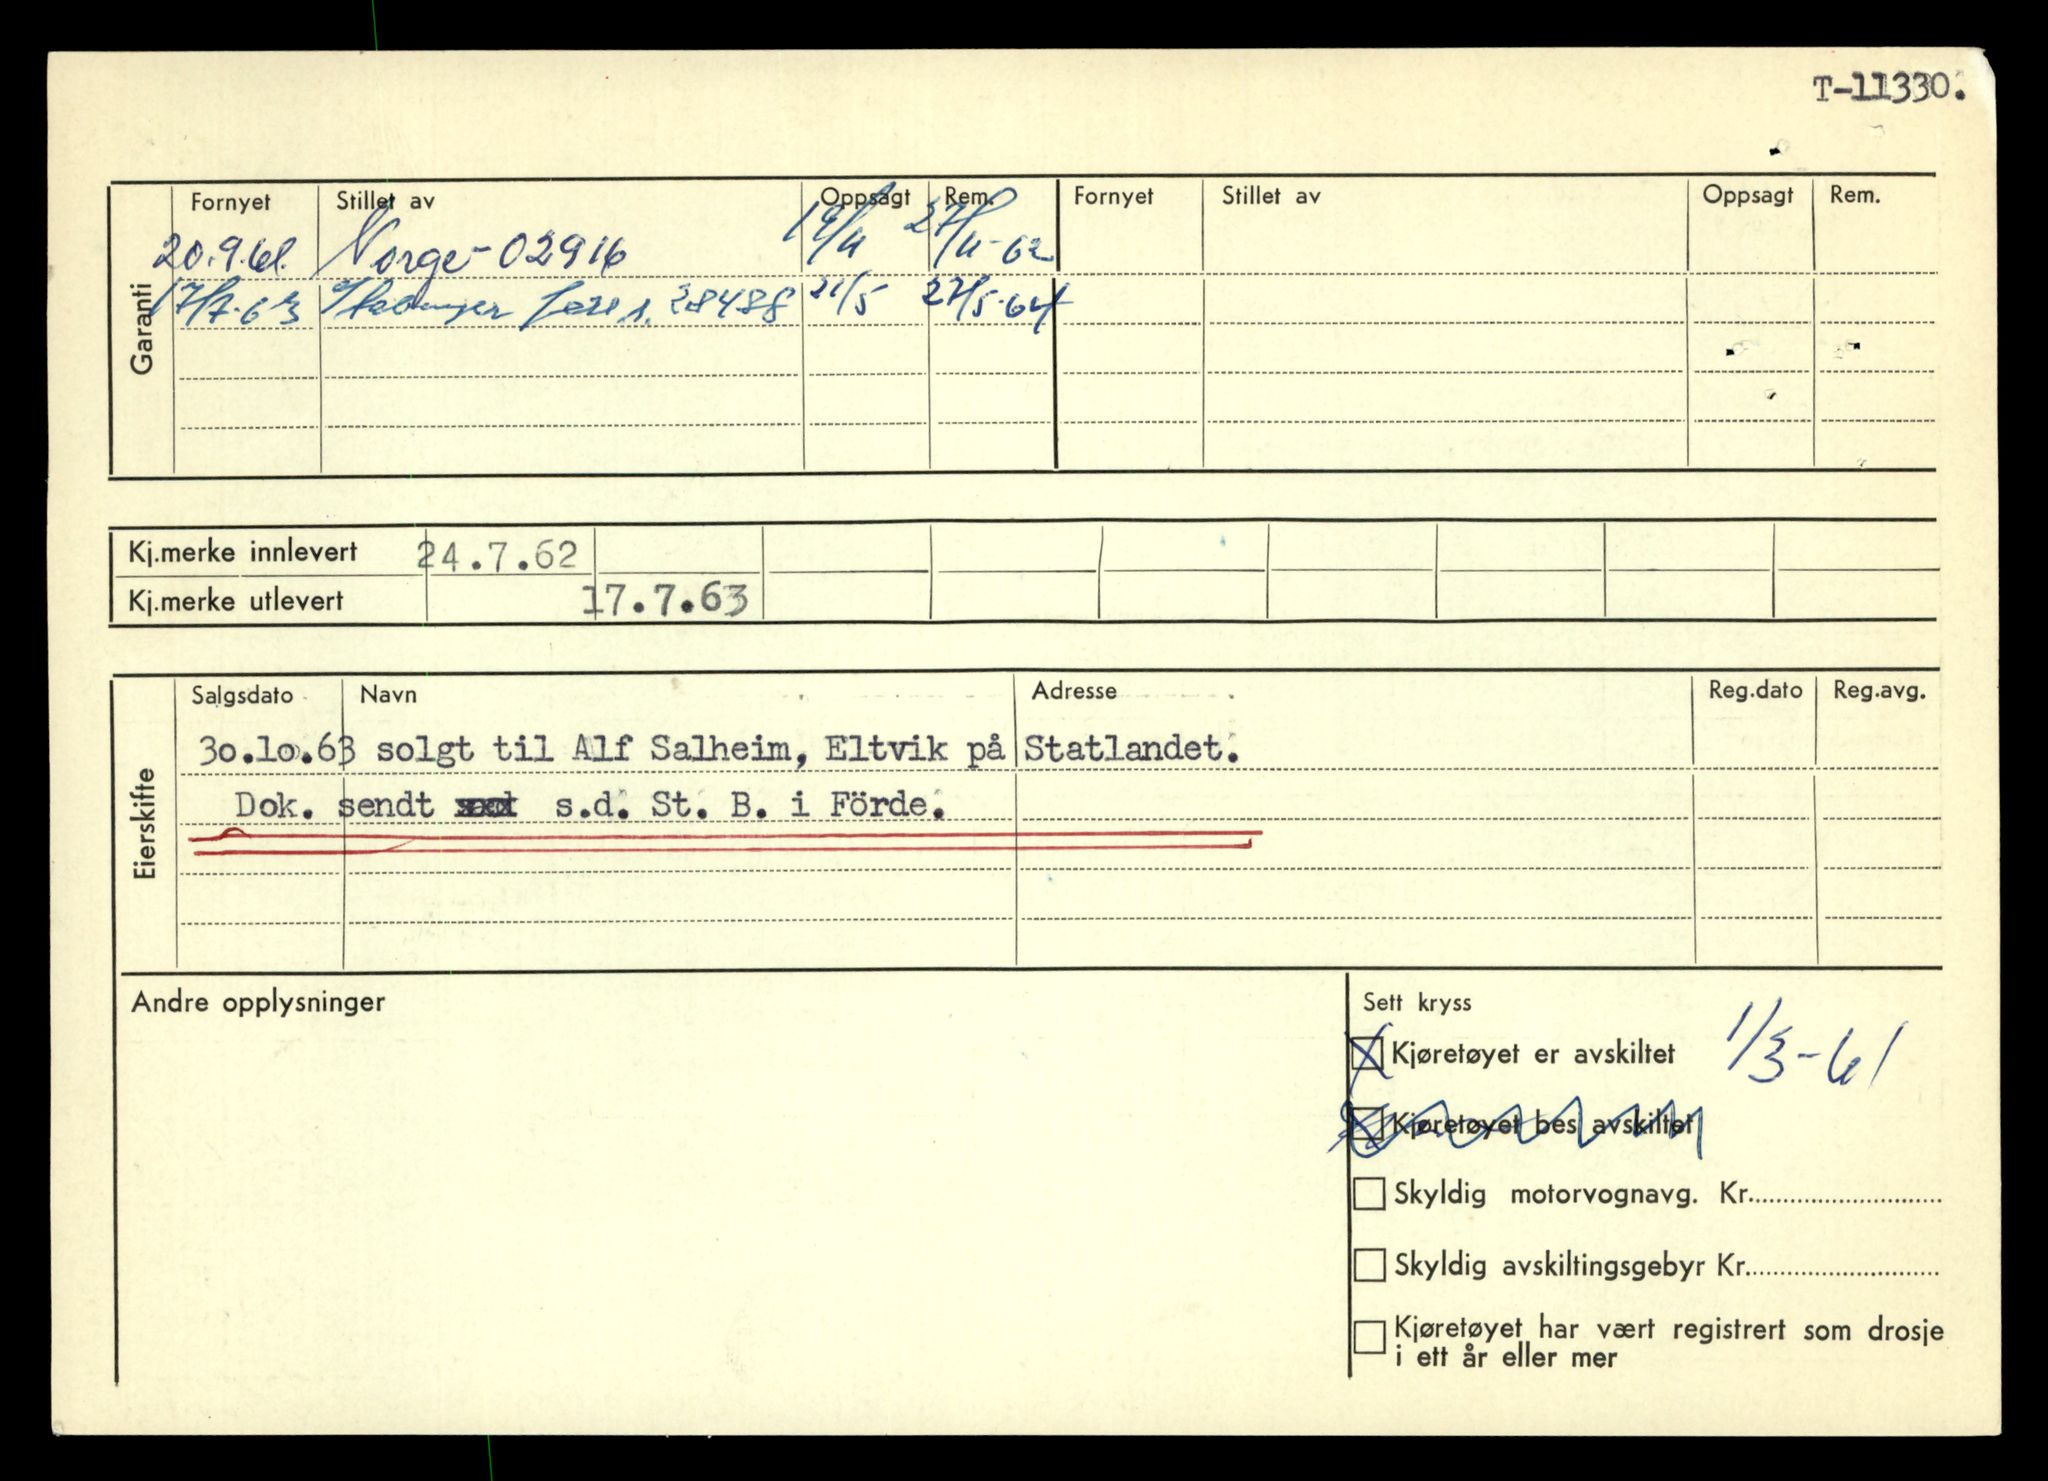 T-11330.
Garanti
Fornyet Stillet av Oppsagt Rem. Fornyet Stillet av Oppsagt Rem.
20.9.61. Norge-02916 19/11 27/11-62
17/7-63 28488 21/5 27/5-64
Kj.merke innlevert 24.7.62
Kj.merke utlevert 17.7.63
Eierskifte
Salgsdato Navn Adresse Reg.dato Reg.avg.
30.10.63 solgt til Alf Salheim, Eltvik på Statlandet.
Dok. sendt s.d. St. B. i Förde.
Andre opplysninger
Sett kryss
Kjøretøyet er avskiltet 1/3-61
Kjøretøyet bes avskiltet
Skyldig motorvognavg. Kr.............................
Skyldig avskiltingsgebyr Kr.............................
Kjøretøyet har vært registrert som drosje
i ett år eller mer